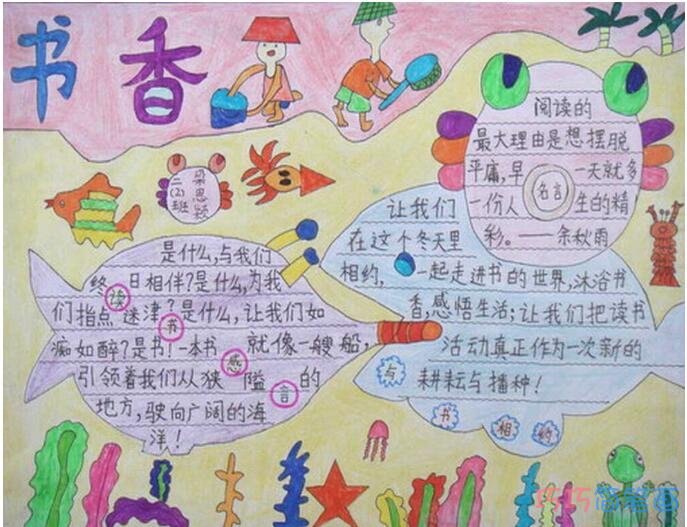 书香
二(2)班
梁思颖
阅读的
最大理由是想摆脱
平庸,早一天就多
一份人生的精
彩。——余秋雨
名言
是什么,与我们
终日相伴?是什么,为我
们指点迷津?是什么,让我们如
痴如醉?是书!一本书就像一艘船,
引领着我们从狭隘的
地方,驶向广阔的海
洋!
读
书
感
言
让我们
在这个冬天里
相约,一起走进书的世界,沐浴书
香,感悟生活;让我们把读书
活动真正作为一次新的
耕耘与播种!
与
书
相
约